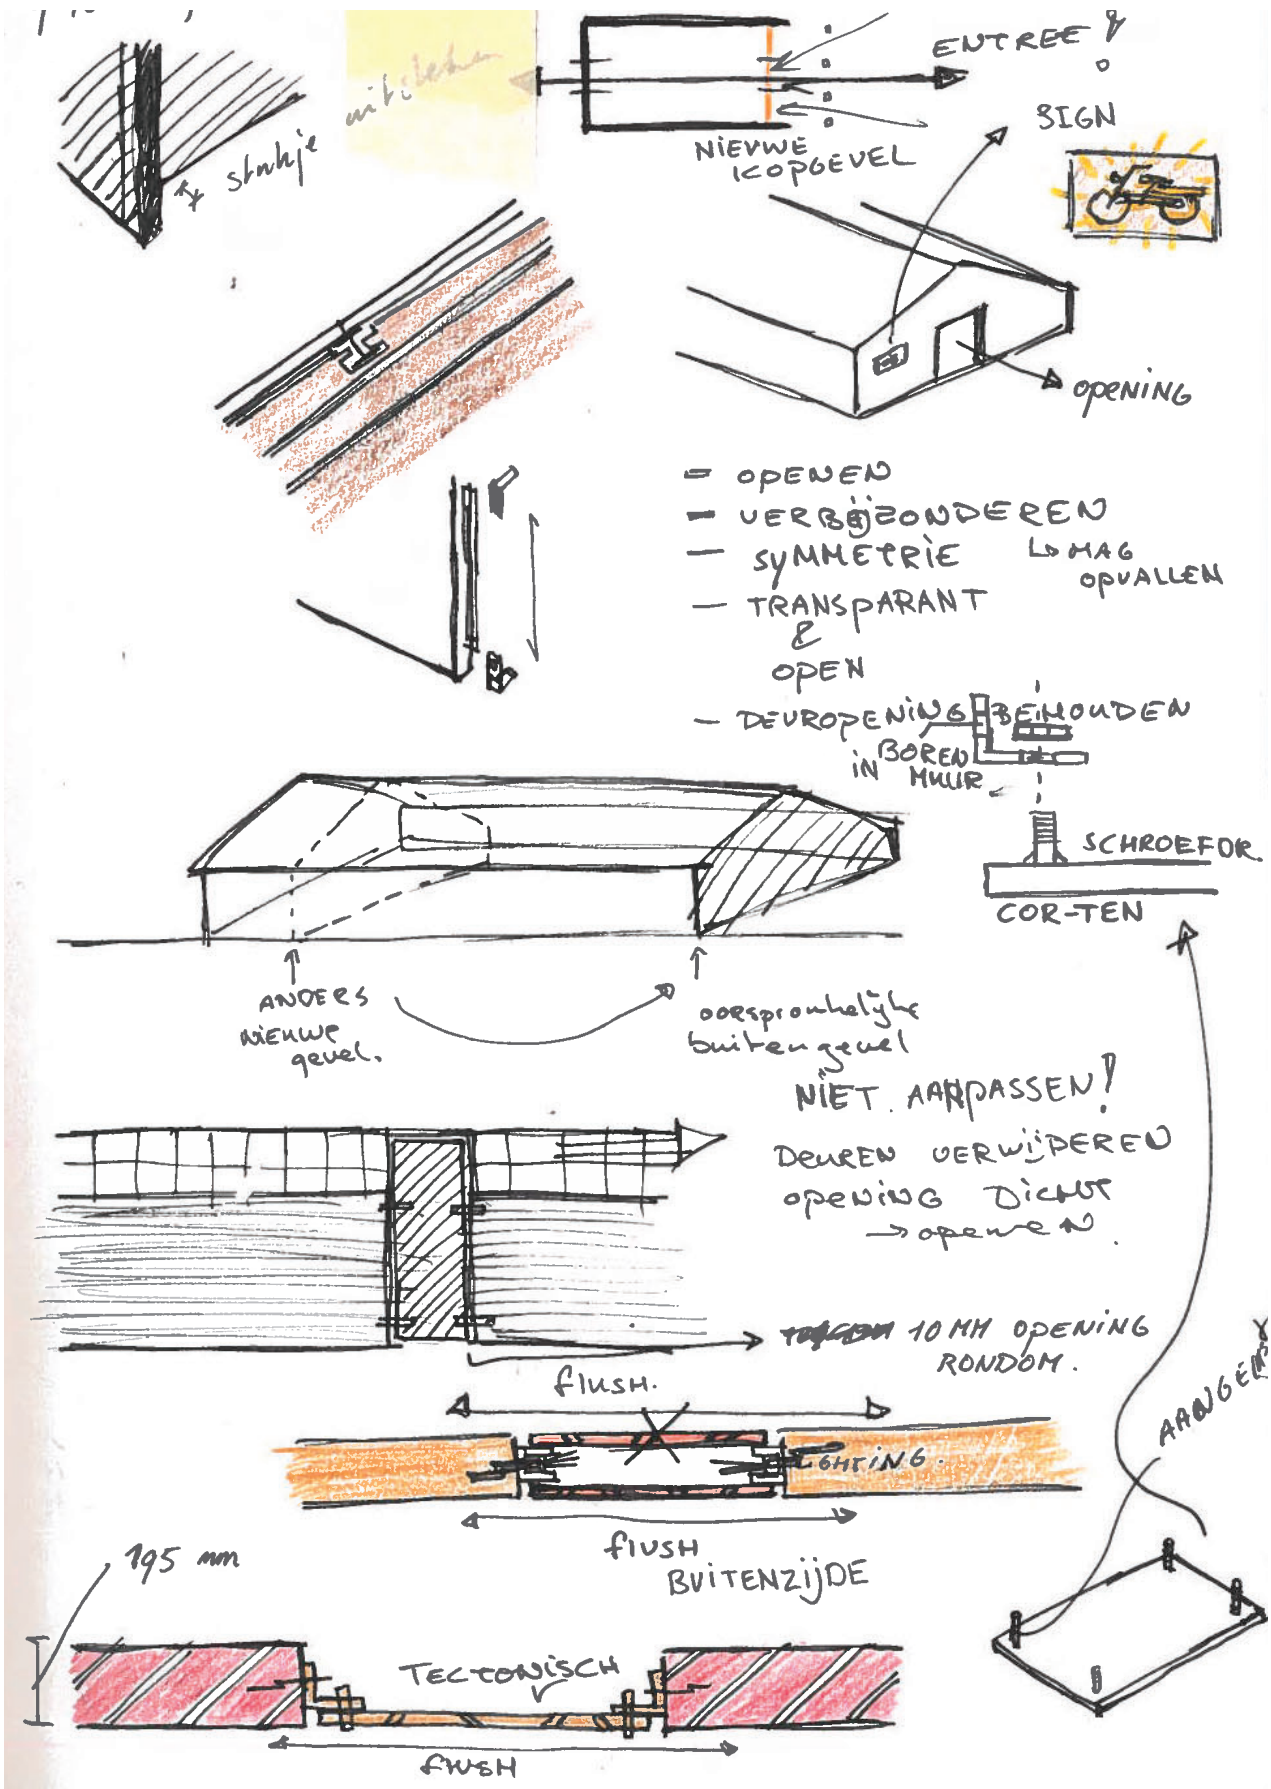 ENTREE!
SIGN
NIEUWE
KOPGEVEL
stukje
OPENING
- OPENEN
- VERBIJZONDEREN
- SYMMETRIE
↳ MAG
OPVALLEN
- TRANSPARANT
&
OPEN
- DEUROPENING BEHOUDEN
BOREN
IN MUUR
SCHROEFDR.
COR-TEN
ANDERS
NIEUWE
gevel.
oorspronkelijke
buitengevel
NIET AANPASSEN!
DEUREN VERWIJDEREN
OPENING DICHT
→ openen.
10 MM OPENING
RONDOM.
flUSH.
LIGHTING.
flUSH
BUITENZIJDE
195 mm
TECTONISCH
flUSH